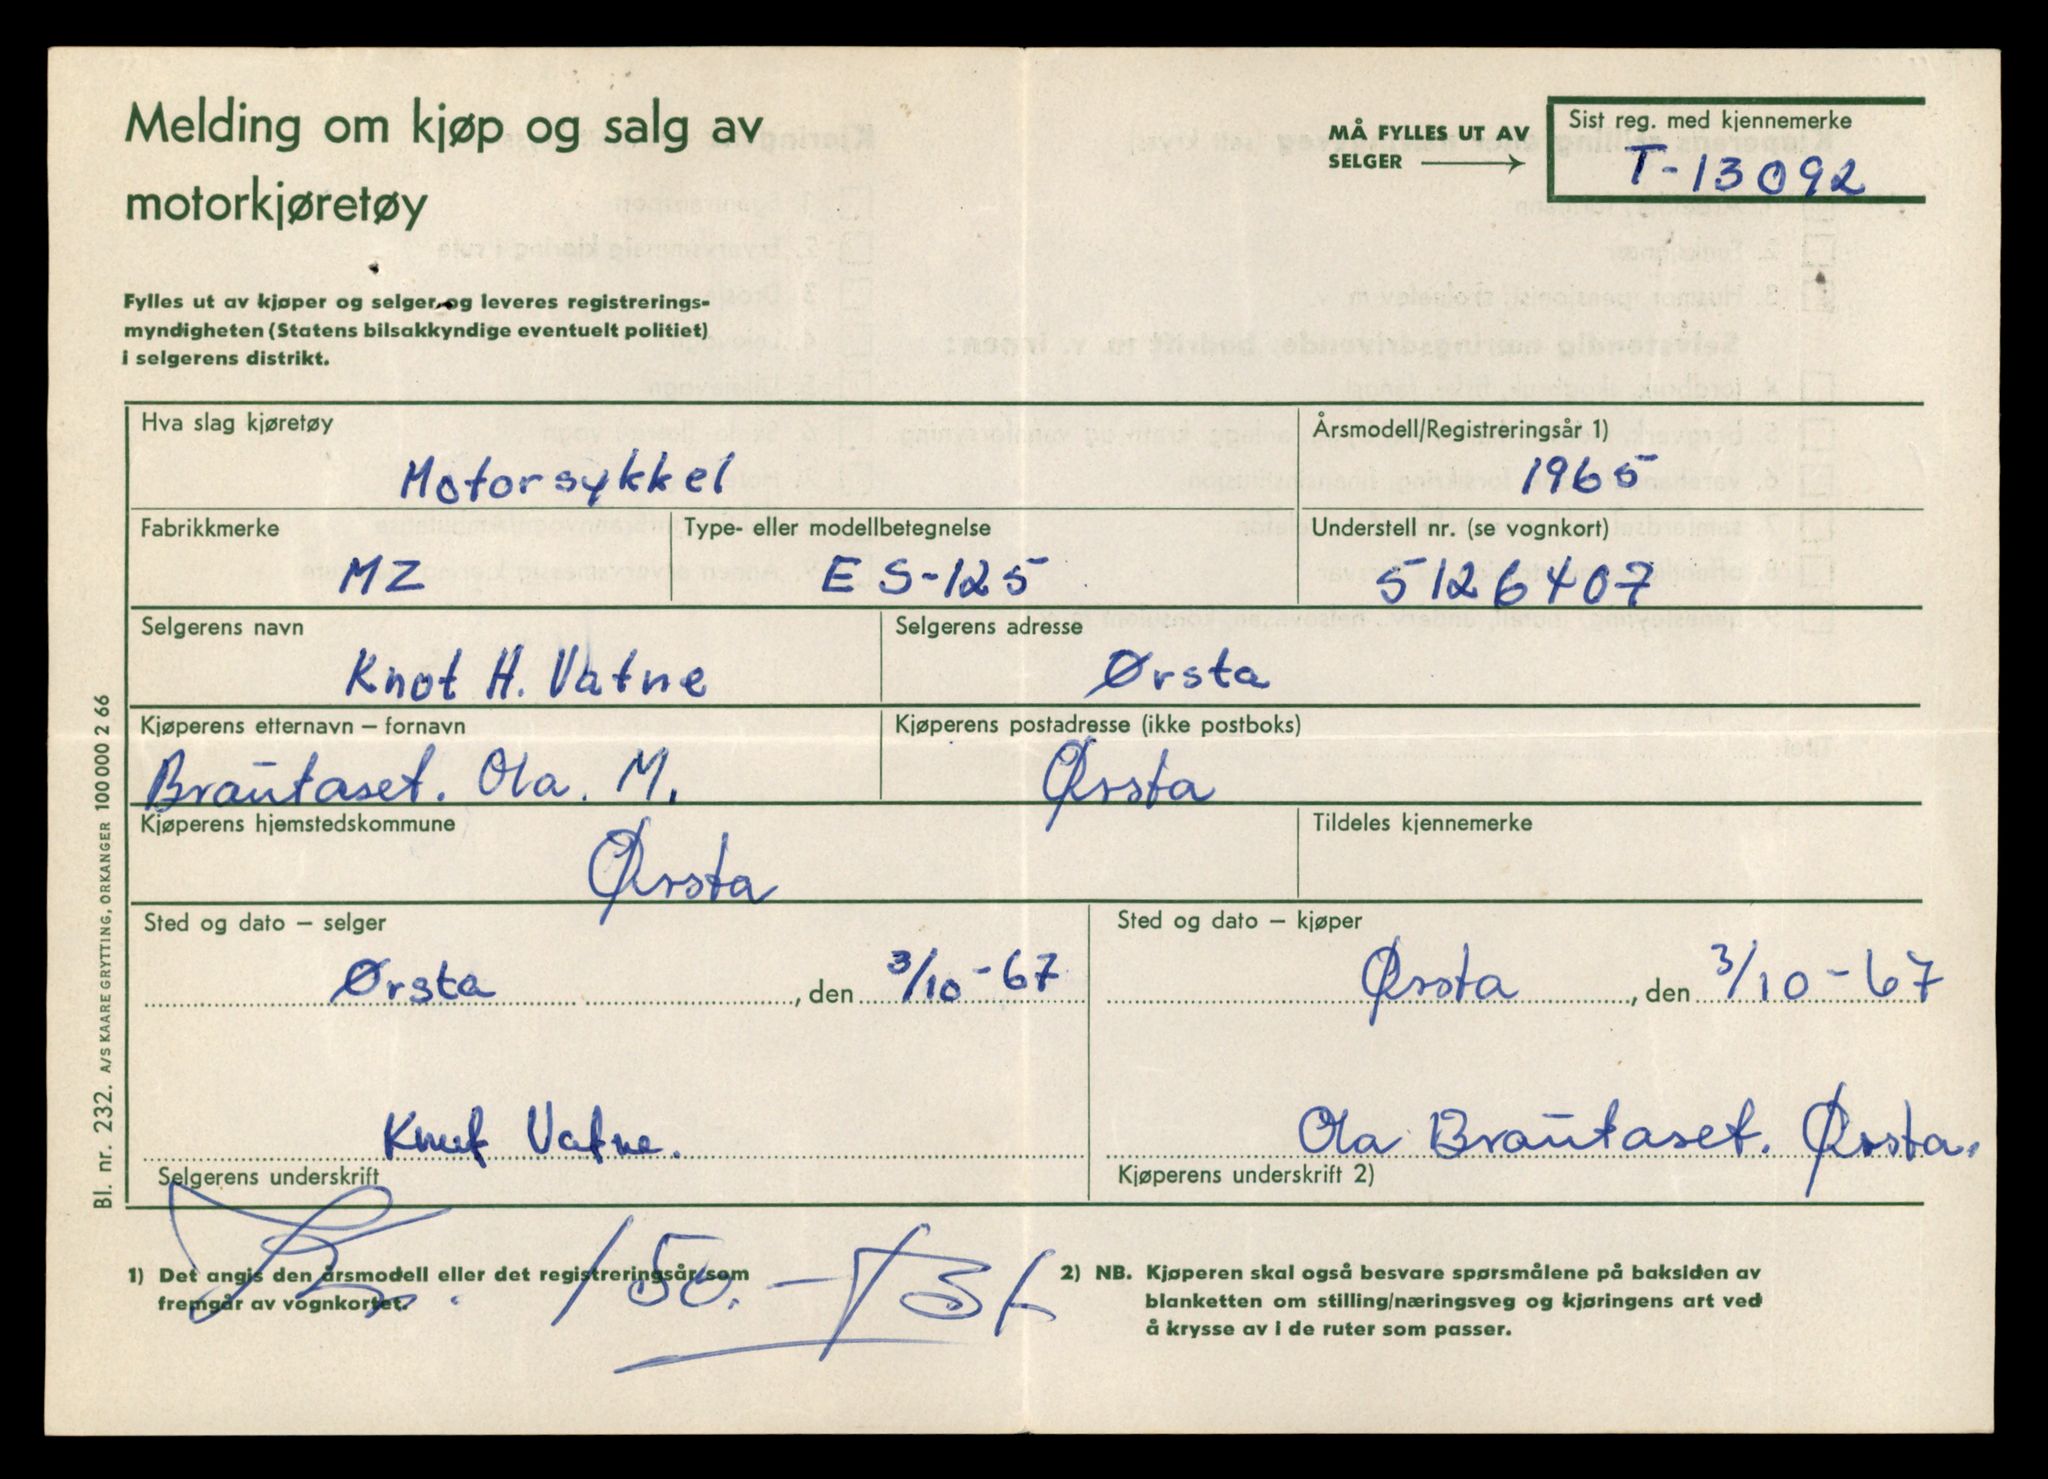 Melding om kjøp og salg av
motorkjøretøy
MÅ FYLLES UT AV
SELGER
Sist reg. med kjennemerke
T-13092
Fylles ut av kjøper og selger og leveres registrerings-
myndigheten (Statens bilsakkyndige eventuelt politiet)
i selgerens distrikt.
Hva slag kjøretøy
Motorsykkel
Årsmodell/Registreringsår 1)
1965
Fabrikkmerke
MZ
Type- eller modellbetegnelse
ES-125
Understell nr. (se vognkort)
5126407
Selgerens navn
Knut H. Vatne
Selgerens adresse
Ørsta
Kjøperens etternavn – fornavn
Brautaset. Ola. M.
Kjøperens postadresse (ikke postboks)
Ørsta
Kjøperens hjemstedskommune
Ørsta
Tildeles kjennemerke
Sted og dato – selger
Ørsta, den 3/10-67
Sted og dato – kjøper
Ørsta, den 3/10-67
Knut Vatne.
Selgerens underskrift
Ola Brautaset. Ørsta.
Kjøperens underskrift 2)
150.-
1) Det angis den årsmodell eller det registreringsår som
fremgår av vognkortet.
2) NB. Kjøperen skal også besvare spørsmålene på baksiden av
blanketten om stilling/næringsveg og kjøringens art ved
å krysse av i de ruter som passer.
Bl. nr. 232. A/S KAARE GRYTTING, ORKANGER 100 000 2 66